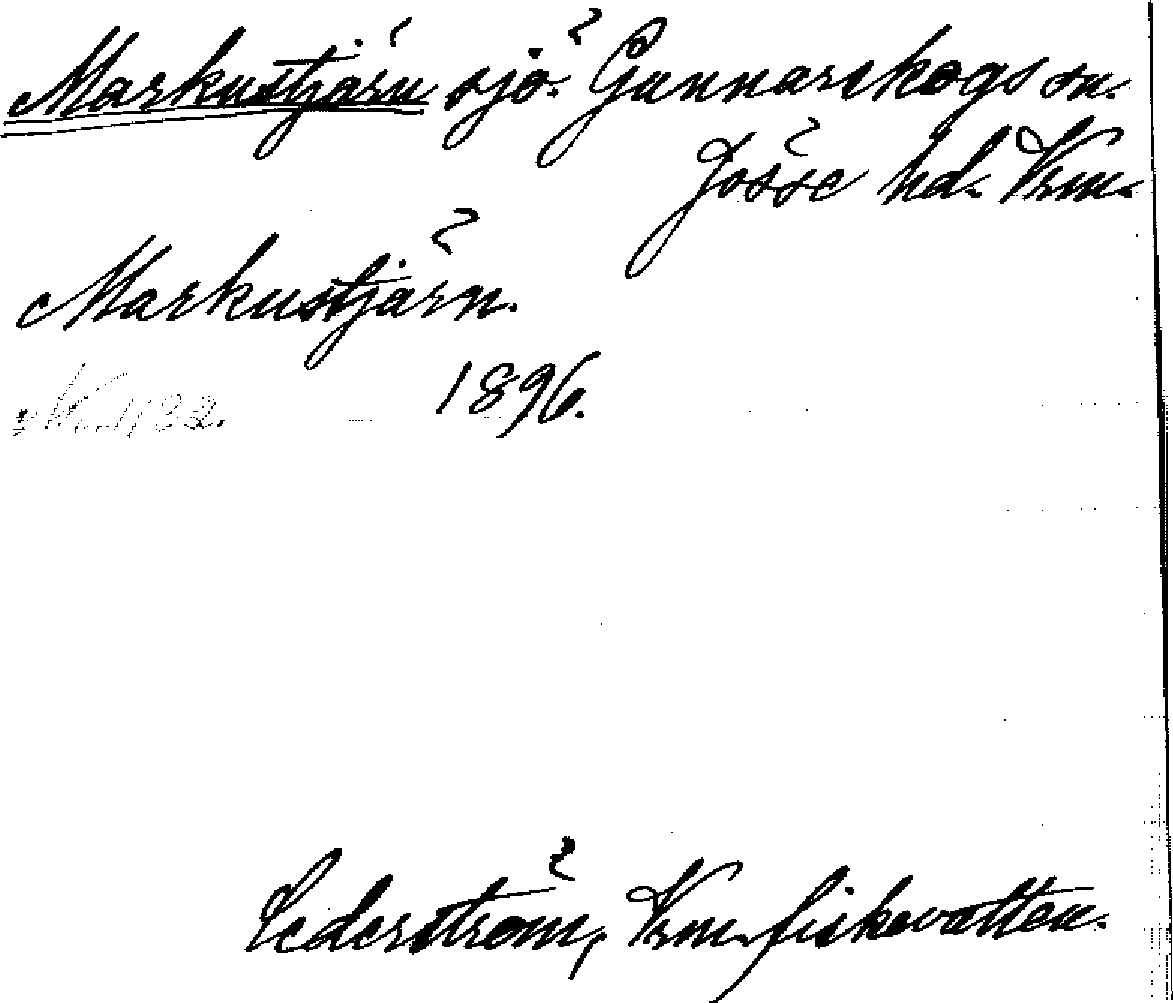 Markustjärn sjö. Gunnarskogs sn.
Jösse hd. Vrm.
Markustjärn.
Nr. 1132. — 1896.
Cederström, Vrm. fiskevatten.